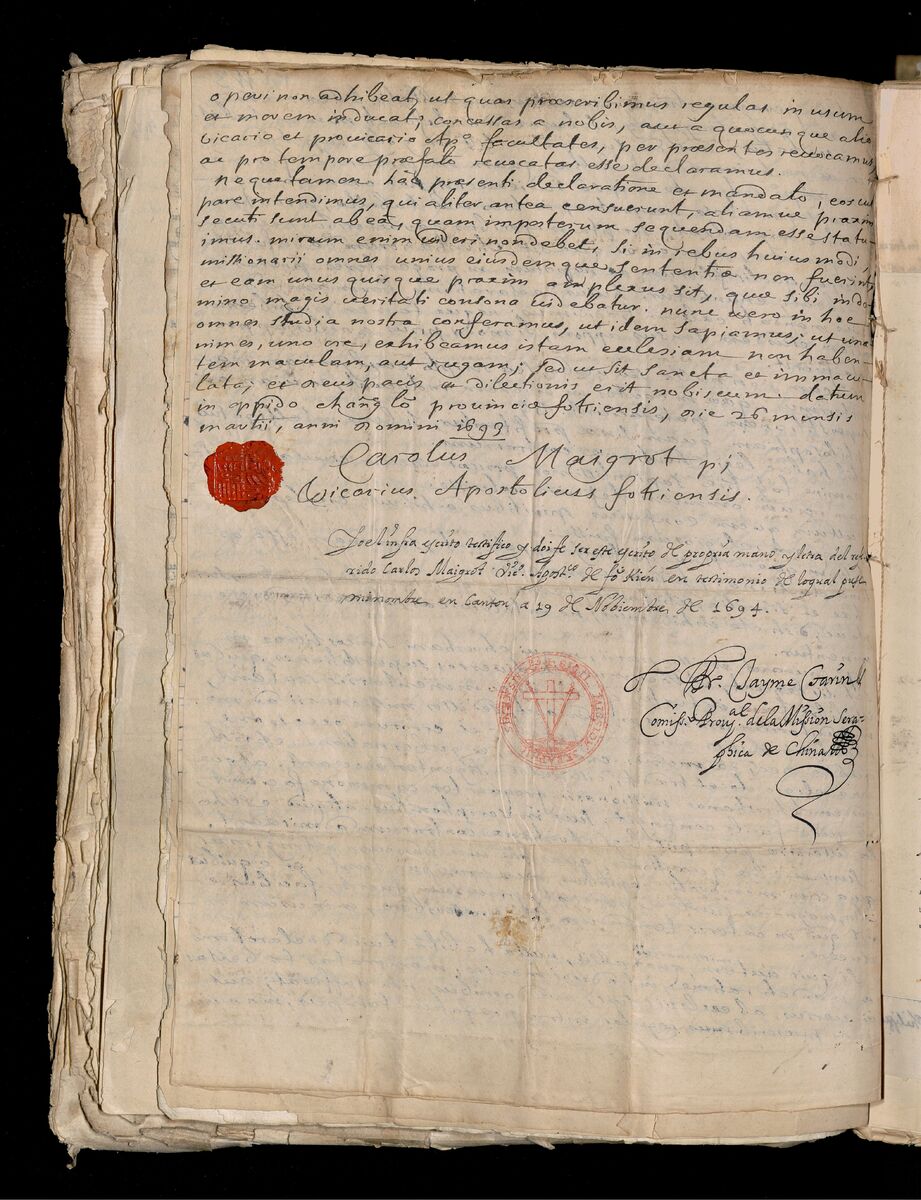 operi non adhibeat, ut quas præscribimus regulas in usum
et morem inducat; concessas a nobis, aut a quocunque alio
vicario et provicario Apº. facultates, per præsentes revocamus
ac pro tempore præfato revocatas esse declaramus.
neque tamen hâc præsenti declaratione et mandato, eos cul
pare intendimus, qui aliter antea censuerunt, aliamve praxim
secuti sunt ab ea, quam imposterum sequendam esse statu-
imus. mirum enim videri non debet, si in rebus huius modi,
missionarii omnes unius eiusdemque sententiæ non fuerint
et eam unus quisque praxim amplexus sit, quæ sibi in do-
mino magis veritati consona videbatur. nunc vero in hoc
omnes studia nostra conferamus, ut idem sapiamus; ut una-
nimes, uno ore, exhibeamus istam ecclesiam non haben-
tem maculam, aut rugam; sed ut sit sancta et immacu-
lata; et Deus pacis et dilectionis erit nobiscum. datum
in oppido chang lŏ provinciæ fokiensis, die 26 mensis
martii, anni Domini 1693
Carolus Maigrot pj
Vicarius Apostolicuss fokiensis.
Yo el infra escrito testifico y doi fe ser este escrito de propria mano y letra del refe-
rido Carlos Maigrot Vicº. Apostcº. de fŏ Kién en testimonio de loqual puse
mi nombre en Canton a 19 de Nobiembre de 1694.
Fr. Jayme Tarin
Comissº. Proval. de la Mission Sera-
phica de China